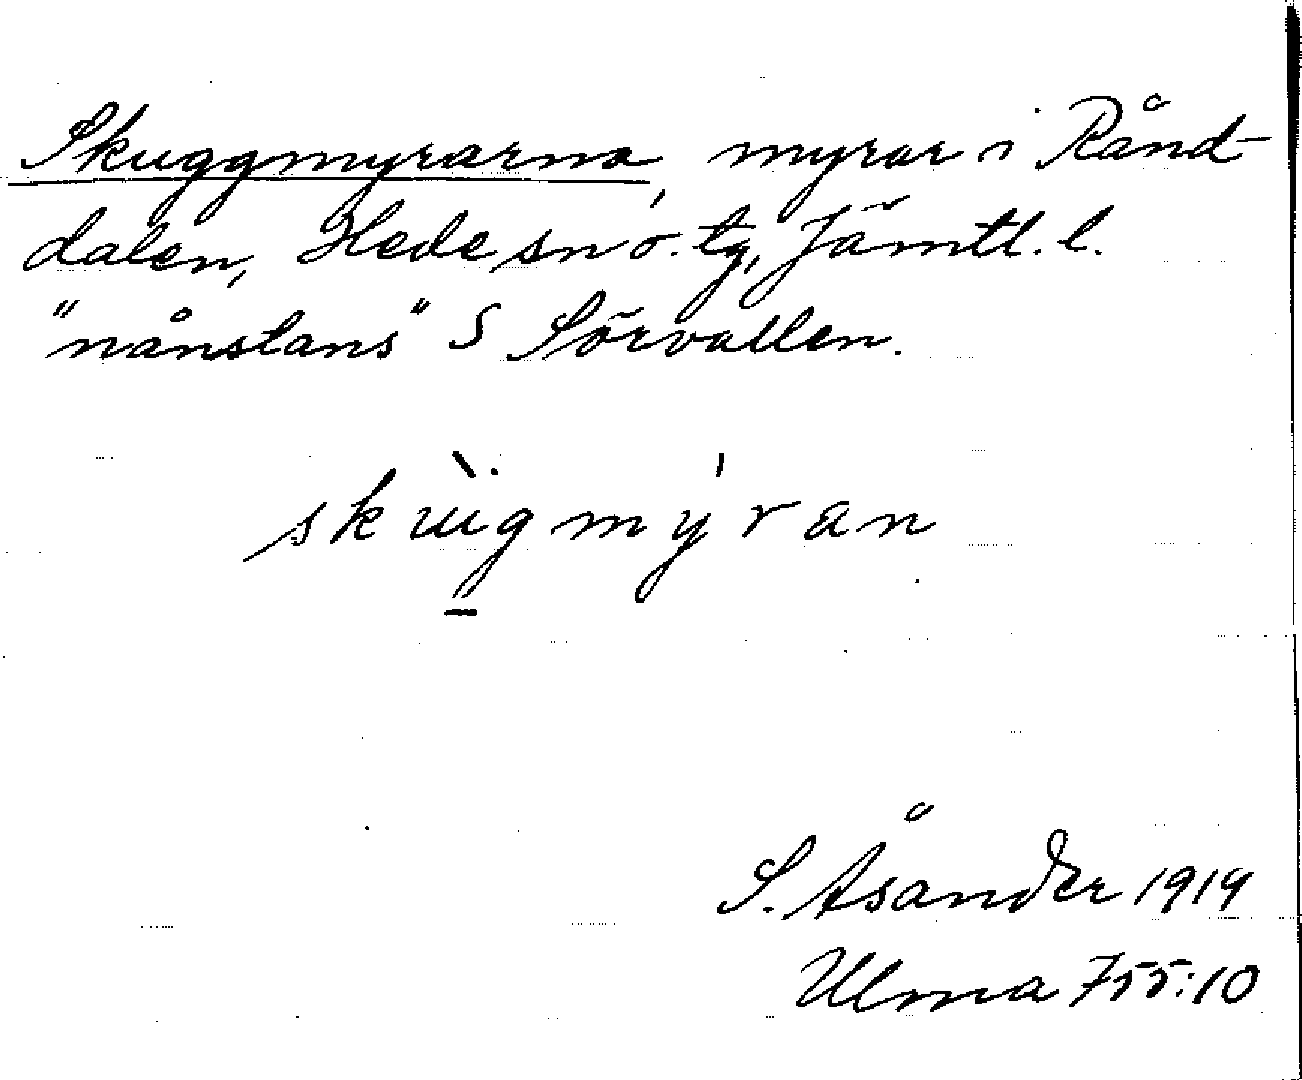 Skuggmyrarna, myrar i Rånd-
dalen, Hede sn o. tg, Jämtl. l.
"nånstans" S Sörvallen.
skùgmýran
S. Åsander 1919
Ulma 755:10